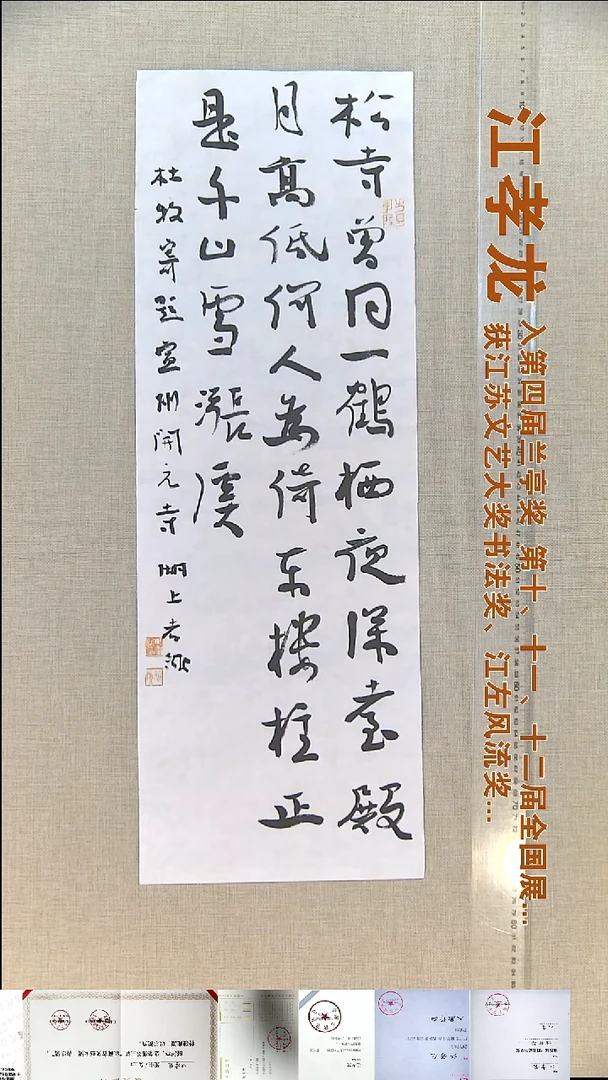 江孝龙
入第四届兰亭奖 第十、十一、十二届全国展...
获江苏文艺大奖书法奖、江左风流奖...
松寺曾同一鶴栖夜深臺殿
月高低何人為倚東樓柱正
是千山雪漲溪
杜牧寄題宣州開元寺 湖上孝龍